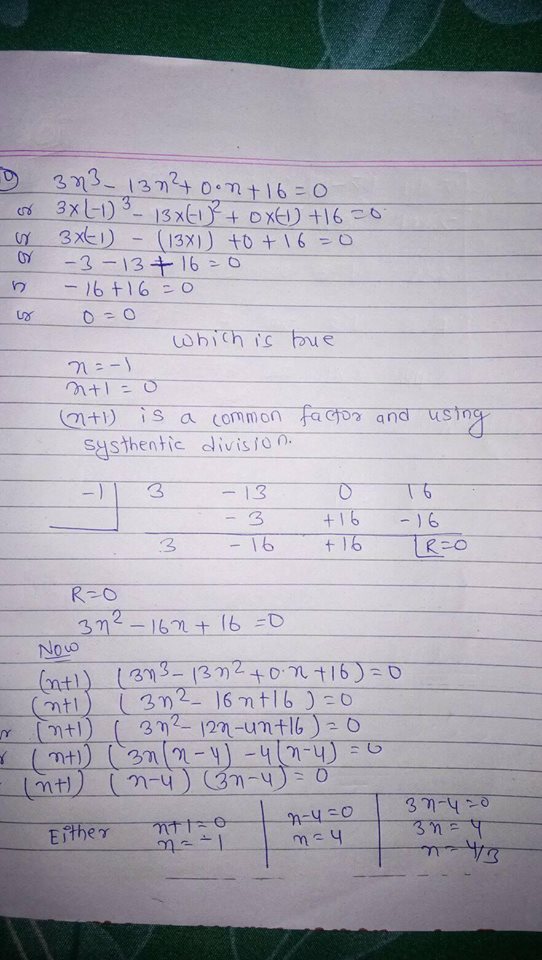 10) 3x³ - 13x² + 0·x + 16 = 0
or 3×(-1)³ - 13×(-1)² + 0×(-1) + 16 = 0
or 3×(-1) - (13×1) + 0 + 16 = 0
or -3 - 13 + 16 = 0
or -16 + 16 = 0
or 0 = 0
which is true
x = -1
x+1 = 0
(x+1) is a common factor and using
systhentic division.
-1 | 3 -13 0 16
-3 +16 -16
3 -16 +16 R=0
R=0
3x² - 16x + 16 = 0
Now
(x+1) (3x³ - 13x² + 0·x + 16) = 0
(x+1) (3x² - 16x + 16) = 0
or (x+1) (3x² - 12x - 4x + 16) = 0
or (x+1) (3x(x-4) - 4(x-4) = 0
(x+1) (x-4) (3x-4) = 0
Either x+1=0 | x-4=0 | 3x-4=0
x=-1 | x=4 | 3x=4
x=4/3